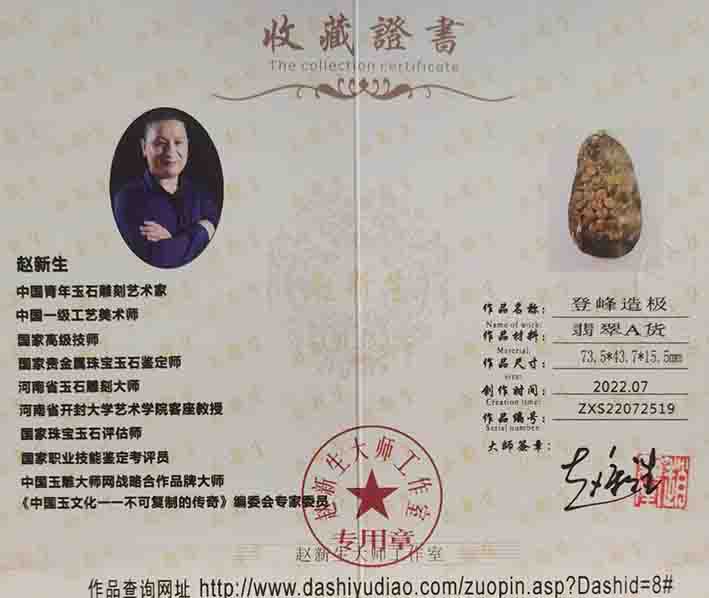 收藏證書
The collection certificate
赵新生
中国青年玉石雕刻艺术家
中国一级工艺美术师
国家高级技师
国家贵金属珠宝玉石鉴定师
河南省玉石雕刻大师
河南省开封大学艺术学院客座教授
国家珠宝玉石评估师
国家职业技能鉴定考评员
中国玉雕大师网战略合作品牌大师
《中国玉文化一一不可复制的传奇》编委会专家委员
作品名称: 登峰造极
Name of work:
作品材料: 翡翠A货
Material:
作品尺寸: 73.5*43.7*15.5mm
size:
创作时间: 2022.07
Creation time:
作品编号: ZXS22072519
Serial number:
大师签章: 赵新生
赵新生大师工作室
专用章
赵新生大师工作室
作品查询网址 http://www.dashiyudiao.com/zuopin.asp?Dashid=8#